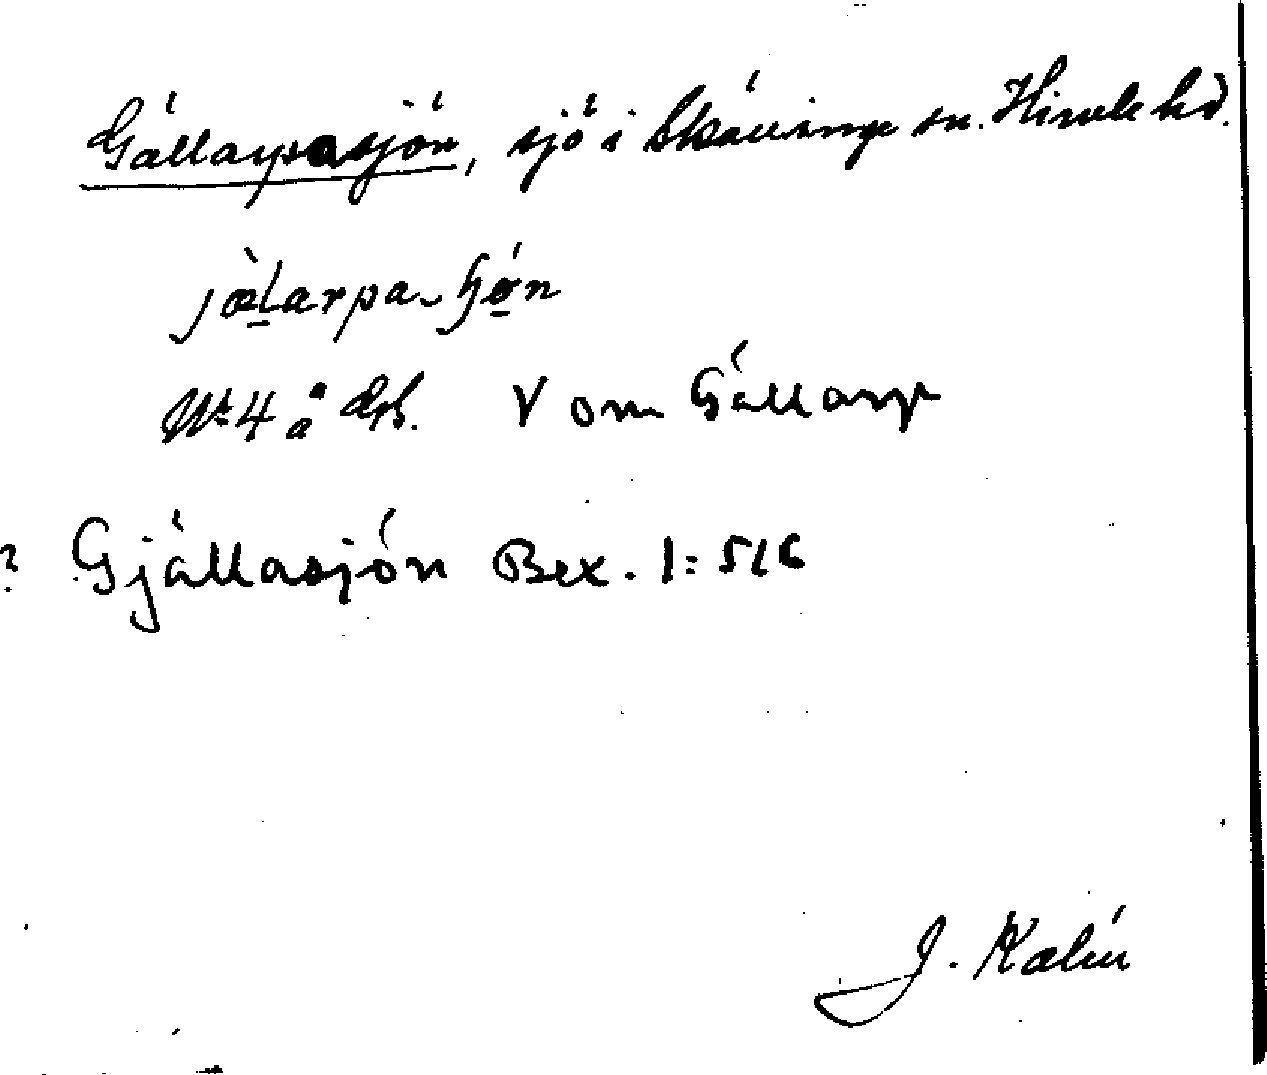 Gállarpasjón, sjö i Skävinge sn. Himle hd.
jälarpa-
Nr 4 å V om Gállarp
? Gjállasjón Bex. 1: 516
J. Kalén